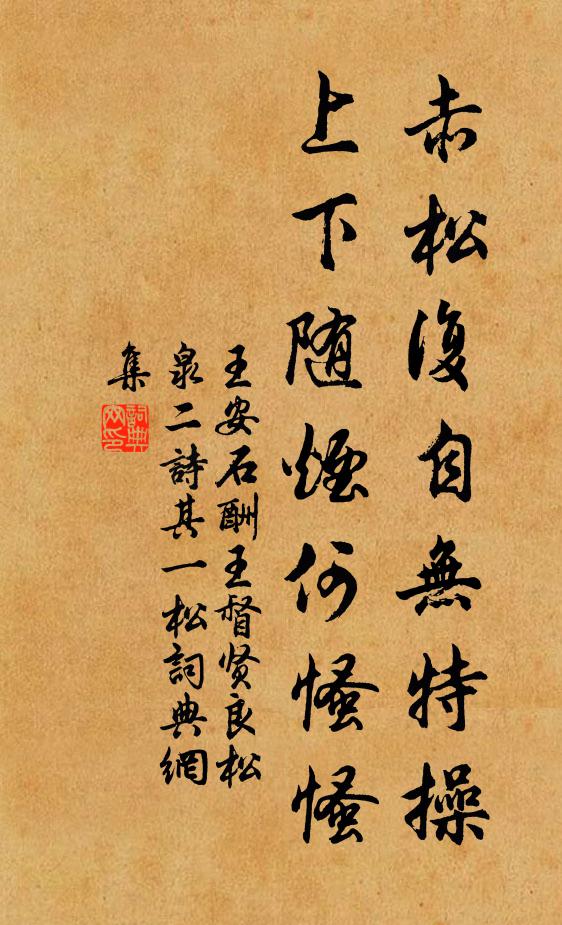 赤松復自無特操
上下随煙何慅慅
王安石酬王督贤良松
泉二詩其一松詞典網
集
詞典网印